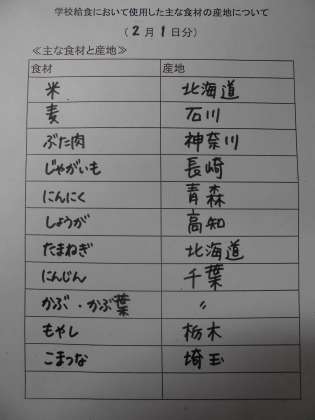 学校給食において使用した主な食材の産地について
(2月1日分)
≪主な食材と産地≫
食材 産地
米 北海道
麦 石川
ぶた肉 神奈川
じゃがいも 長崎
にんにく 青森
しょうが 高知
たまねぎ 北海道
にんじん 千葉
かぶ・かぶ葉 〃
もやし 栃木
こまつな 埼玉